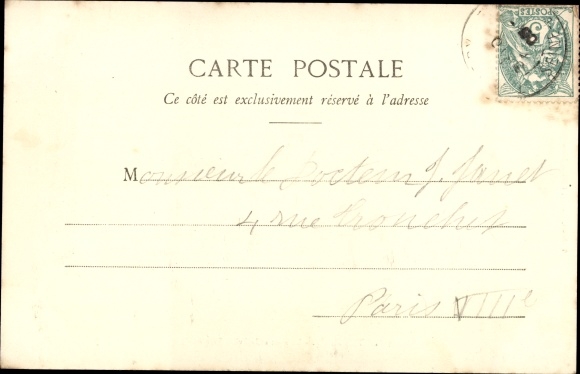 CARTE POSTALE
Ce côté est exclusivement réservé à l'adresse
Monsieur le Docteur J. Janet
4, rue Tronchet
Paris VIIIe
POSTES
5